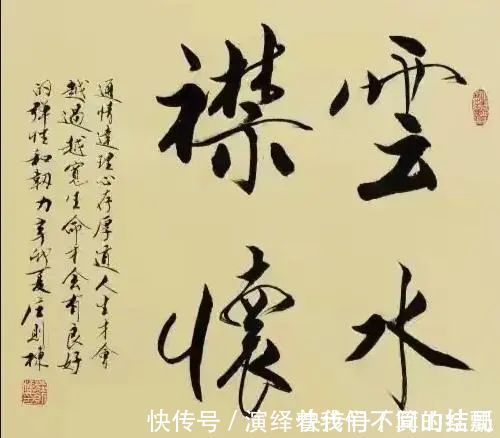 雲水
襟懷
通情達理心存厚道人生才會
越過越寬生命才会有良好
的弹性和韌力辛卯夏庄則棟
快传号 / 演绎